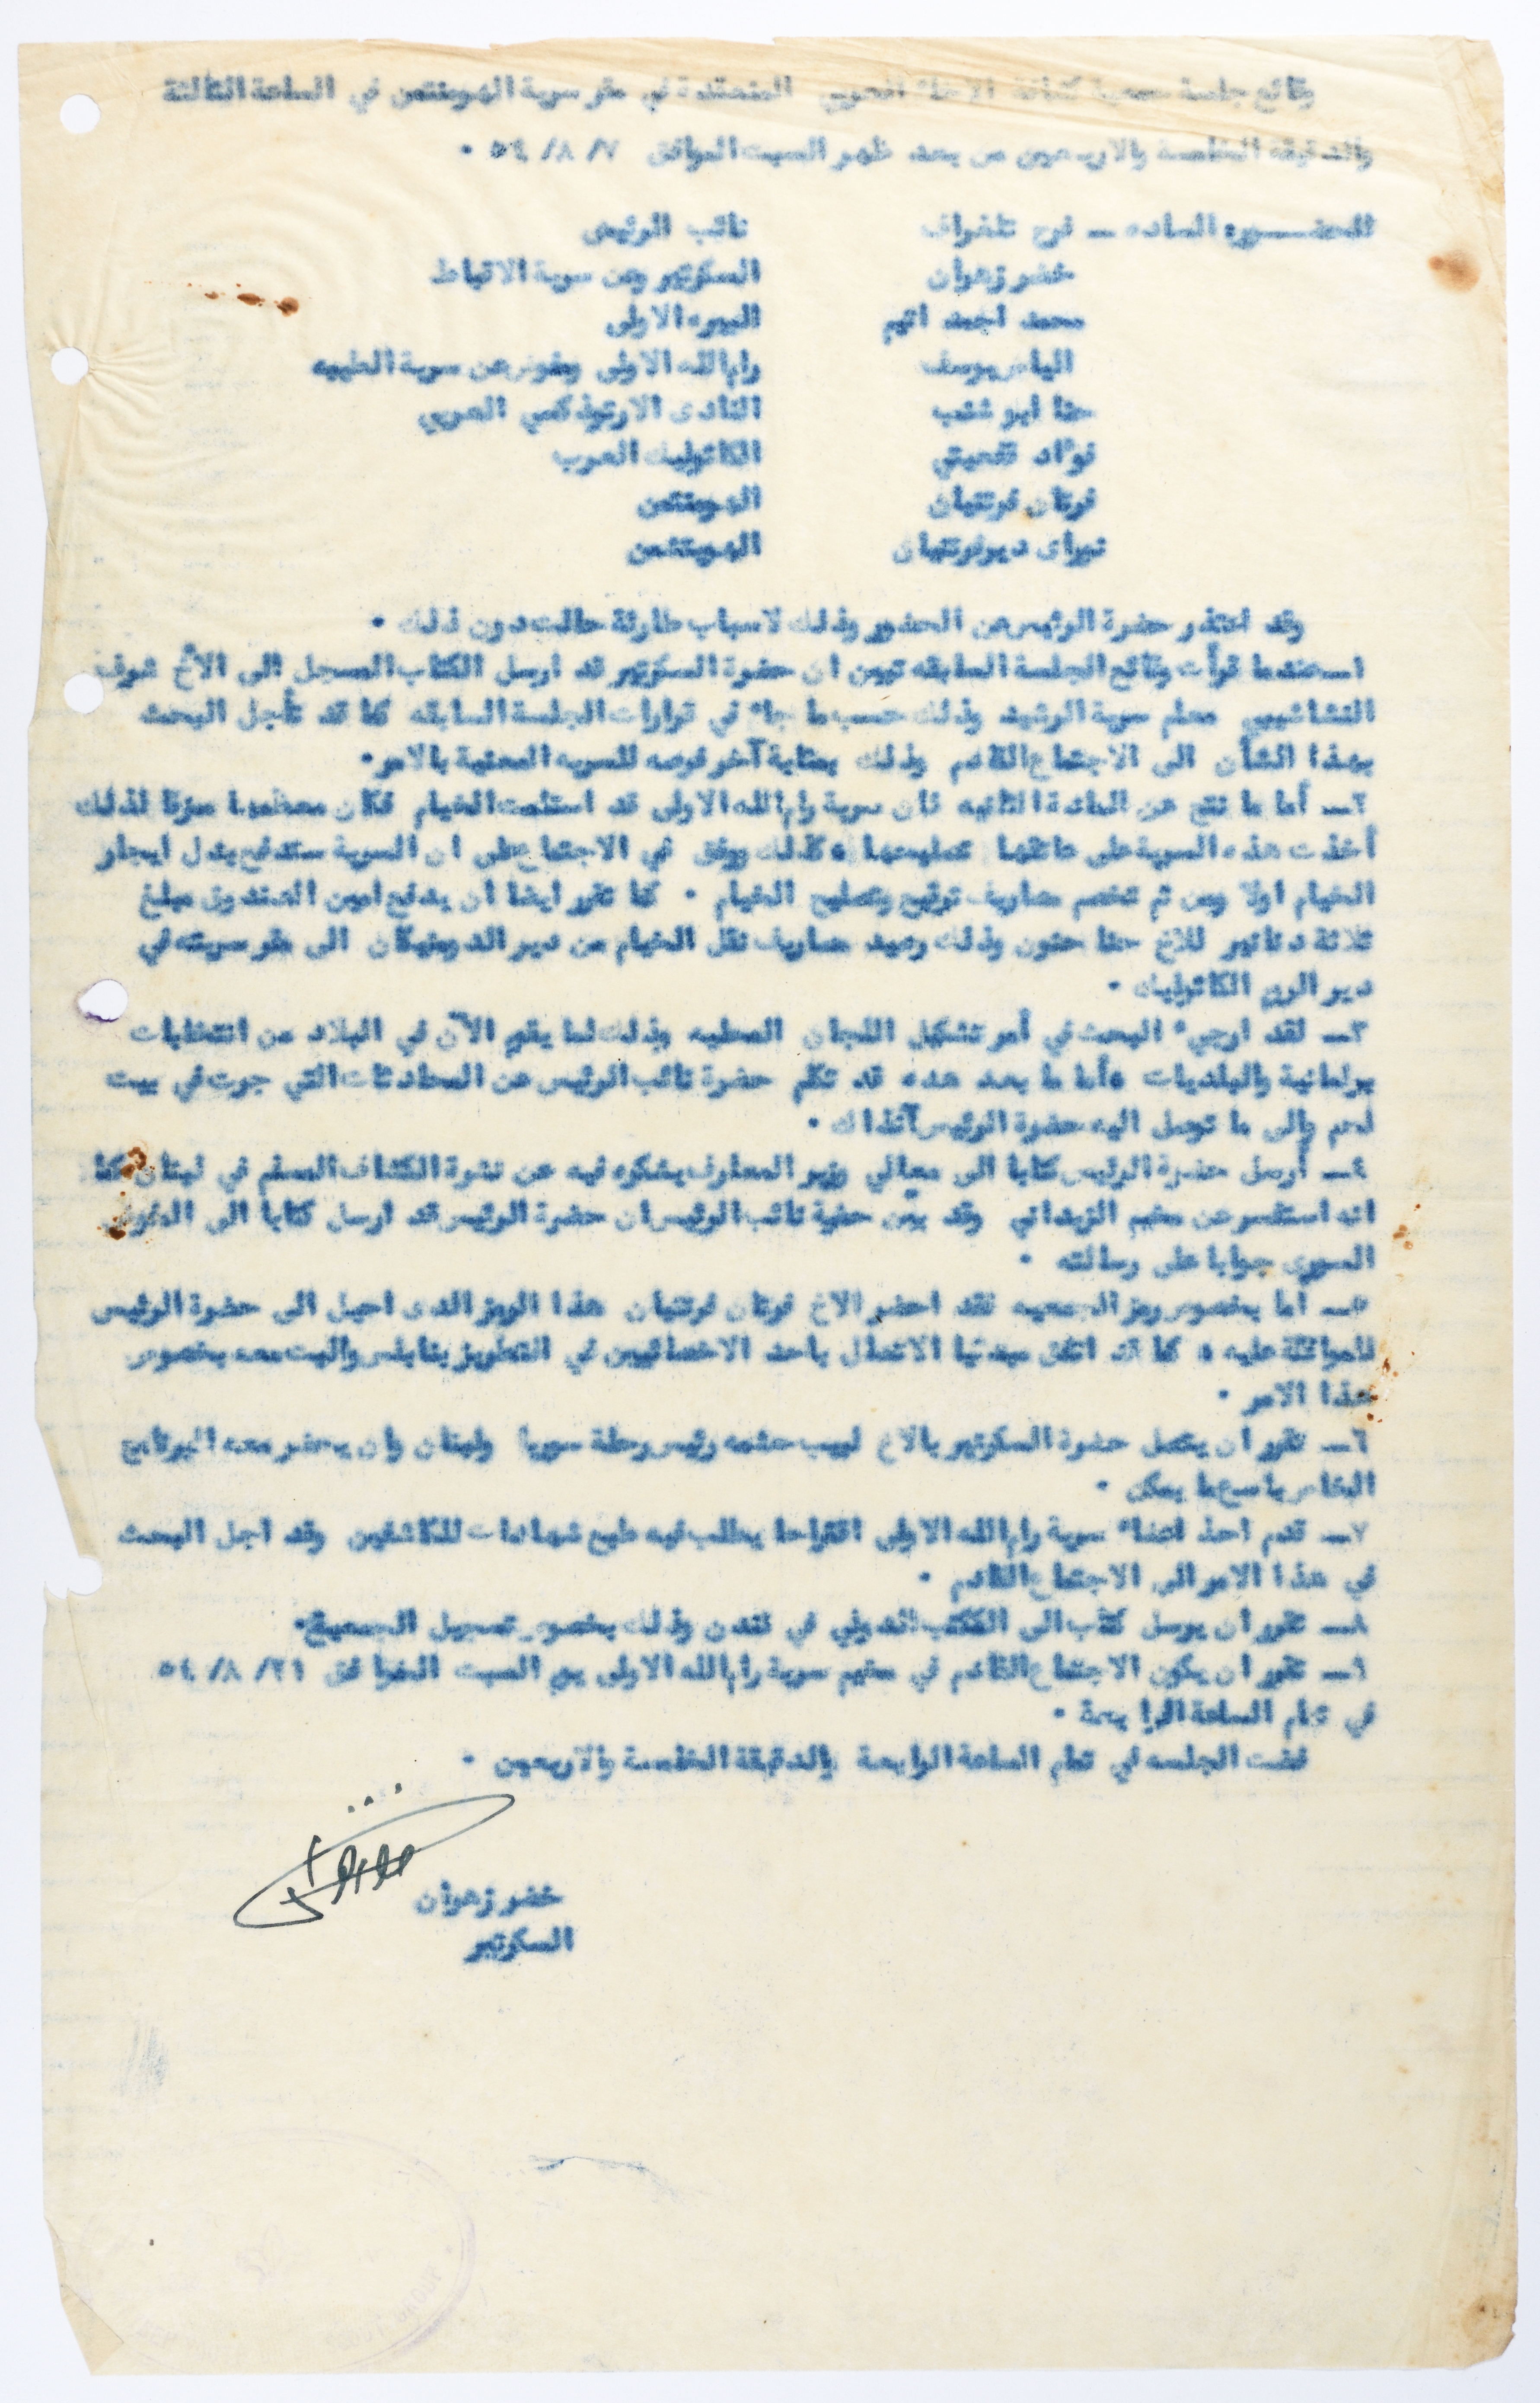 وقائع جلسة جمعية كشافة الاحفاد العربي المنعقدة في مقر سرية الهومنتمن في الساعة الثالثة
والدقيقه الخامسة والاربعين من بعد ظهر السبت الموافق ٧/ ٨/ ٥٤ ٠
الحضــور: الساده ــ فرح تلغراف نائب الرئيس
خضر زهران السكرتير وعن سرية الاقباط
محمد احمد البيره الاولى
الياس يوسف رام الله الاولى ومفوض عن سرية الطيبه
حنا ابو شنب النادى الارثوذكسي العربي
فؤاد الكاثوليك العرب
فرتان فرتنيان الهومنتمن
ديرفرتنيان الهومنتمن
وقد اعتذر حضرة الرئيس عن الحضور وذلك لاسباب طارئة حالت دون ذلك ٠
١ــ عندما قرأت وقائع الجلسة السابقه تبين ان حضرة السكرتير قد ارسل الكتاب المسجل الى الأخ شوقي
النشاشيبي معلم سرية الرشيد وذلك حسب ما جاء في قرارات الجلسة السابقه كما قد تأجل البحث
بهذا الشأن الى الاجتماع القادم وذلك بمثابة آخر فرصه للسريه المعنية بالامر٠
٢ــ أما ما نتج عن المادة الثانيه فان سرية رام الله الاولى قد استلمت الخيام فكان معظمها ممزقا لذلك
أخذت هذه السرية على عاتقها تصليحها ٠ كذلك ووفق في الاجتماع على ان السرية ستدفع بدل ايجار
الخيام اولا ومن ثم تخصم مصاريف ترقيع وتصليح الخيام ٠ كما تقرر ايضا ان يدفع امين الصندوق مبلغ
ثلاثة دنانير للاخ حنا حنون وذلك رصيد مصاريف نقل الخيام من دير الدومنيكان الى مقر سريته في
دير الروم الكاثوليك ٠
٣ــ لقد ارجيء البحث في أمر تشكيل اللجان المحليه وذلك لما يقوم الآن في البلاد من انتخابات
برلمانية والبلديات ٠ أما ما بعد هذه قد تكلم حضرة نائب الرئيس عن المحادثات التي جرت في بيت
لحم والى ما توصل اليه حضرة الرئيس آنذاك ٠
٤ــ أرسل حضرة الرئيس كتابا الى معالي وزير المعارف يشكره فيه عن نشرة الكشاف المسلم في لبنان كما
انه استفسر عن مخيم الزبداني وقد بين حضرة نائب الرئيس ان حضرة الرئيس قد ارسل كتابا الى المفوض
السورى جوابا على رسالته ٠
٥ــ أما بخصوص رمز الجمعيه فقد احضر الاخ فرتان فرتنيان هذا الرمز الذى احيل الى حضرة الرئيس
للموافقة عليه ٠ كما قد اتفق مبدئيا الاتصال باحد الاخصائيين في التطريز بنابلس والبت معه بخصوص
هذا الامر ٠
٦ــ تقرر ان يتصل حضرة السكرتير بالاخ لبيب حشمه رئيس رحلة سوريا ولبنان وان يحضر معه البرنامج
الخاص باسرع ما يمكن ٠
٧ــ قدم احد اعضاء سرية رام الله الاولى اقتراحا يطلب فيه طبع شهادات للكاشفين وقد اجل البحث
في هذا الامر الى الاجتماع القادم ٠
٨ــ تقرر ان يرسل كتاب الى المكتب الدولي في لندن وذلك بخصوص تسجيل الجمعية٠
٩ــ تقرر ان يكون الاجتماع القادم في مخيم سرية رام الله الاولى يوم السبت الموافق ٢١/ ٨/ ٥٤
في تمام الساعة الرابعة ٠
فضت الجلسه في تمام الساعة الرابعة والدقيقة الخامسة والاربعين ٠
خضر زهران
السكرتير